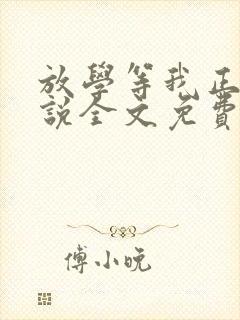 放學等我正
說全文免費
傅小晚